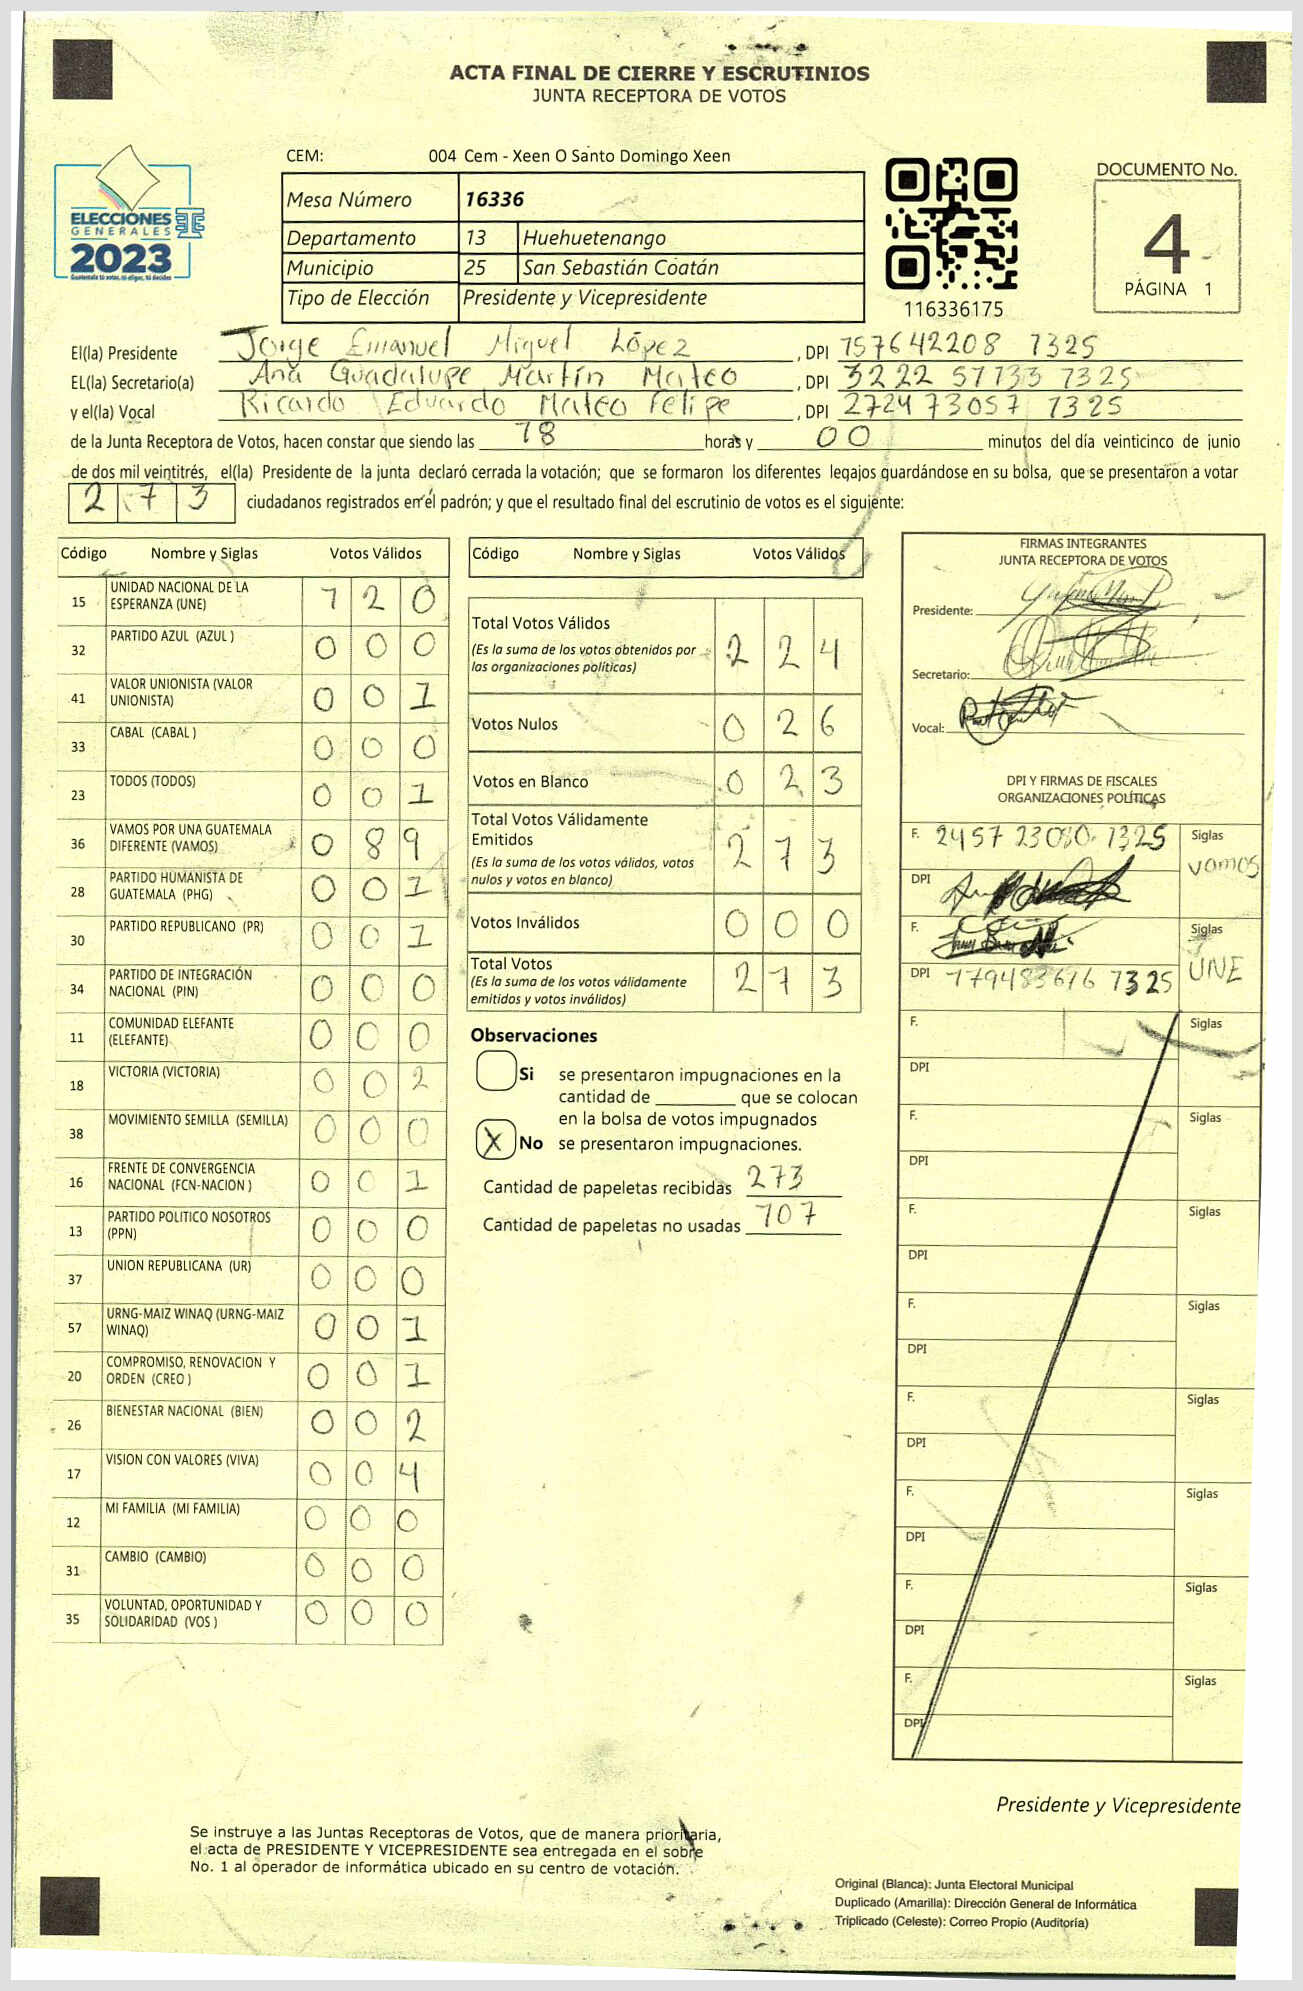 ACTA FINAL DE CIERRE Y ESCRUTINIOS
JUNTA RECEPTORA DE VOTOS
CEM: 004 Cem - Xeen O Santo Domingo Xeen
ELECCIONES
GENERALES
2023
Guatemala tú votas, tú eliges, tú decides
Mesa Número 16336
Departamento 13 Huehuetenango
Municipio 25 San Sebastián Coatán
Tipo de Elección Presidente y Vicepresidente
116336175
DOCUMENTO No.
4
PÁGINA 1
El(la) Presidente Jorge Emanuel Miguel López , DPI 157642208 1325
EL(la) Secretario(a) Ana Guadalupe Martín Mateo , DPI 3222 57733 1325
y el(la) Vocal Ricardo Eduardo Mateo Felipe , DPI 2724 73057 1325
de la Junta Receptora de Votos, hacen constar que siendo las 18 horas y 00 minutos del día veinticinco de junio
de dos mil veintitrés, el(la) Presidente de la junta declaró cerrada la votación; que se formaron los diferentes legajos guardándose en su bolsa, que se presentaron a votar
273 ciudadanos registrados en el padrón; y que el resultado final del escrutinio de votos es el siguiente:
Código Nombre y Siglas Votos Válidos
15 UNIDAD NACIONAL DE LA ESPERANZA (UNE) 1 2 0
32 PARTIDO AZUL (AZUL ) 0 0 0
41 VALOR UNIONISTA (VALOR UNIONISTA) 0 0 1
33 CABAL (CABAL ) 0 0 0
23 TODOS (TODOS) 0 0 1
36 VAMOS POR UNA GUATEMALA DIFERENTE (VAMOS) 0 8 9
28 PARTIDO HUMANISTA DE GUATEMALA (PHG) 0 0 1
30 PARTIDO REPUBLICANO (PR) 0 0 1
34 PARTIDO DE INTEGRACIÓN NACIONAL (PIN) 0 0 0
11 COMUNIDAD ELEFANTE (ELEFANTE) 0 0 0
18 VICTORIA (VICTORIA) 0 0 2
38 MOVIMIENTO SEMILLA (SEMILLA) 0 0 0
16 FRENTE DE CONVERGENCIA NACIONAL (FCN-NACION ) 0 0 1
13 PARTIDO POLITICO NOSOTROS (PPN) 0 0 0
37 UNION REPUBLICANA (UR) 0 0 0
57 URNG-MAIZ WINAQ (URNG-MAIZ WINAQ) 0 0 1
20 COMPROMISO, RENOVACION Y ORDEN (CREO ) 0 0 1
26 BIENESTAR NACIONAL (BIEN) 0 0 2
17 VISION CON VALORES (VIVA) 0 0 4
12 MI FAMILIA (MI FAMILIA) 0 0 0
31 CAMBIO (CAMBIO) 0 0 0
35 VOLUNTAD, OPORTUNIDAD Y SOLIDARIDAD (VOS ) 0 0 0
Código Nombre y Siglas Votos Válidos
Total Votos Válidos 2 2 4
(Es la suma de los votos obtenidos por
las organizaciones políticas)
Votos Nulos 0 2 6
Votos en Blanco 0 2 3
Total Votos Válidamente
Emitidos 2 7 3
(Es la suma de los votos válidos, votos
nulos y votos en blanco)
Votos Inválidos 0 0 0
Total Votos 2 7 3
(Es la suma de los votos válidamente
emitidos y votos inválidos)
Observaciones
Si se presentaron impugnaciones en la
cantidad de ________ que se colocan
en la bolsa de votos impugnados
X No se presentaron impugnaciones.
Cantidad de papeletas recibidas 273
Cantidad de papeletas no usadas 107
FIRMAS INTEGRANTES
JUNTA RECEPTORA DE VOTOS
Presidente:
Secretario:
Vocal:
DPI Y FIRMAS DE FISCALES
ORGANIZACIONES POLÍTICAS
F. 2457 23080 1325 Siglas
DPI vamos
F. Siglas
DPI 1325 UNE
F. Siglas
DPI
F. Siglas
DPI
F. Siglas
DPI
F. Siglas
DPI
F. Siglas
DPI
F. Siglas
DPI
F. Siglas
DPI
F. Siglas
DPI
Presidente y Vicepresidente
Se instruye a las Juntas Receptoras de Votos, que de manera prioritaria,
el acta de PRESIDENTE Y VICEPRESIDENTE sea entregada en el sobre
No. 1 al operador de informática ubicado en su centro de votación.
Original (Blanca): Junta Electoral Municipal
Duplicado (Amarilla): Dirección General de Informática
Triplicado (Celeste): Correo Propio (Auditoría)